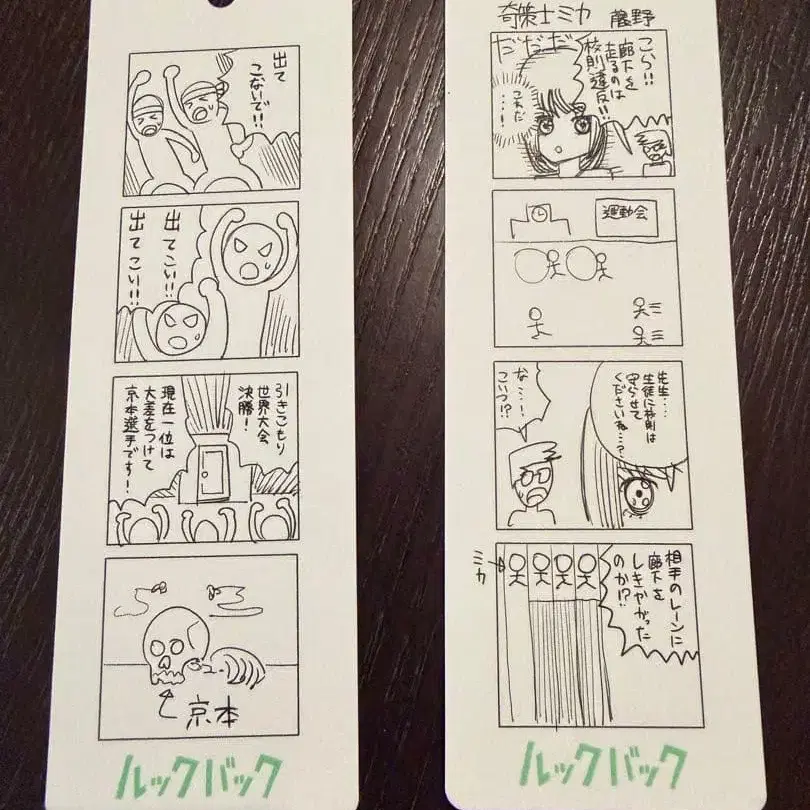 出て
こないで!!
出てこい!!
出てこい!!
引きこもり
世界大会
決勝!
現在一位は
大差をつけて
京本選手です!
京本
ルックバック
奇策士ミカ 藤野
こら!!
廊下を
走るのは
校則違反!!
だだだ
これだ
…!
運動会
先生…
生徒に校則は
守らせて
くださいね…?
な…!
こいつ!?
相手のレーンに
廊下を
しきやがった
のか!?
ミカ
ルックバック